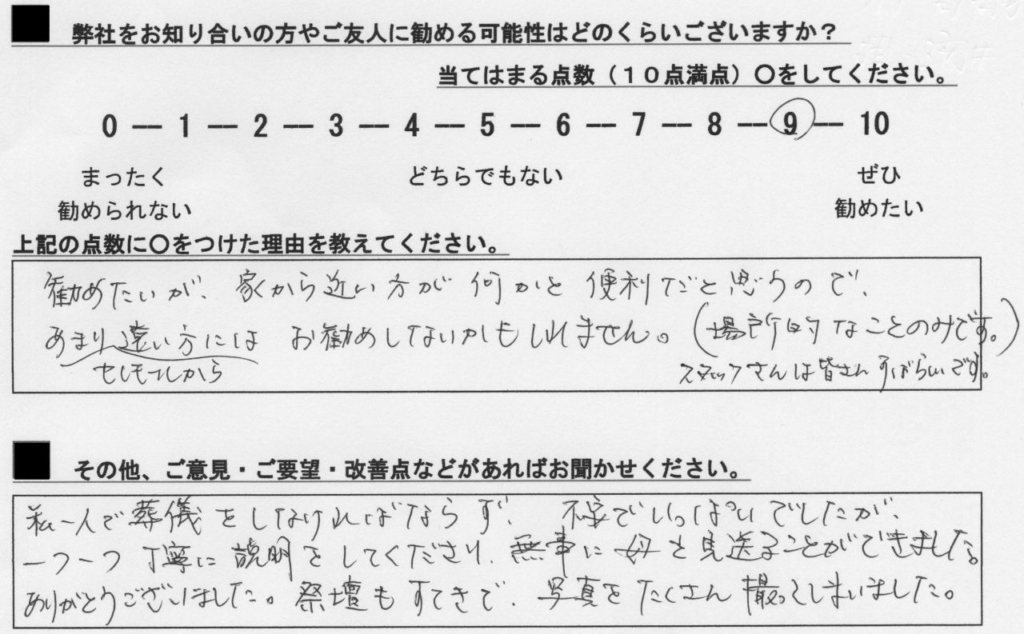 弊社をお知り合いの方やご友人に勧める可能性はどのくらいございますか？
当てはまる点数（１０点満点）〇をしてください。
0 ― 1 ― 2 ― 3 ― 4 ― 5 ― 6 ― 7 ― 8 ― 9 ― 10
まったく どちらでもない ぜひ
勧められない 勧めたい
上記の点数に〇をつけた理由を教えてください。
勧めたいが、家から近い方が何かと便利だと思うので、
あまり遠い方には お勧めしないかもしれません。(場所的なことのみです。)
セレモールから スタッフさんは皆さんすばらしいです。
その他、ご意見・ご要望・改善点などがあればお聞かせください。
私一人で葬儀をしなければならず、不安でいっぱいでしたが、
一つ一つ丁寧に説明をしてくださり、無事に母を見送ることができました。
ありがとうございました。祭壇もすてきで、写真をたくさん撮ってしまいました。